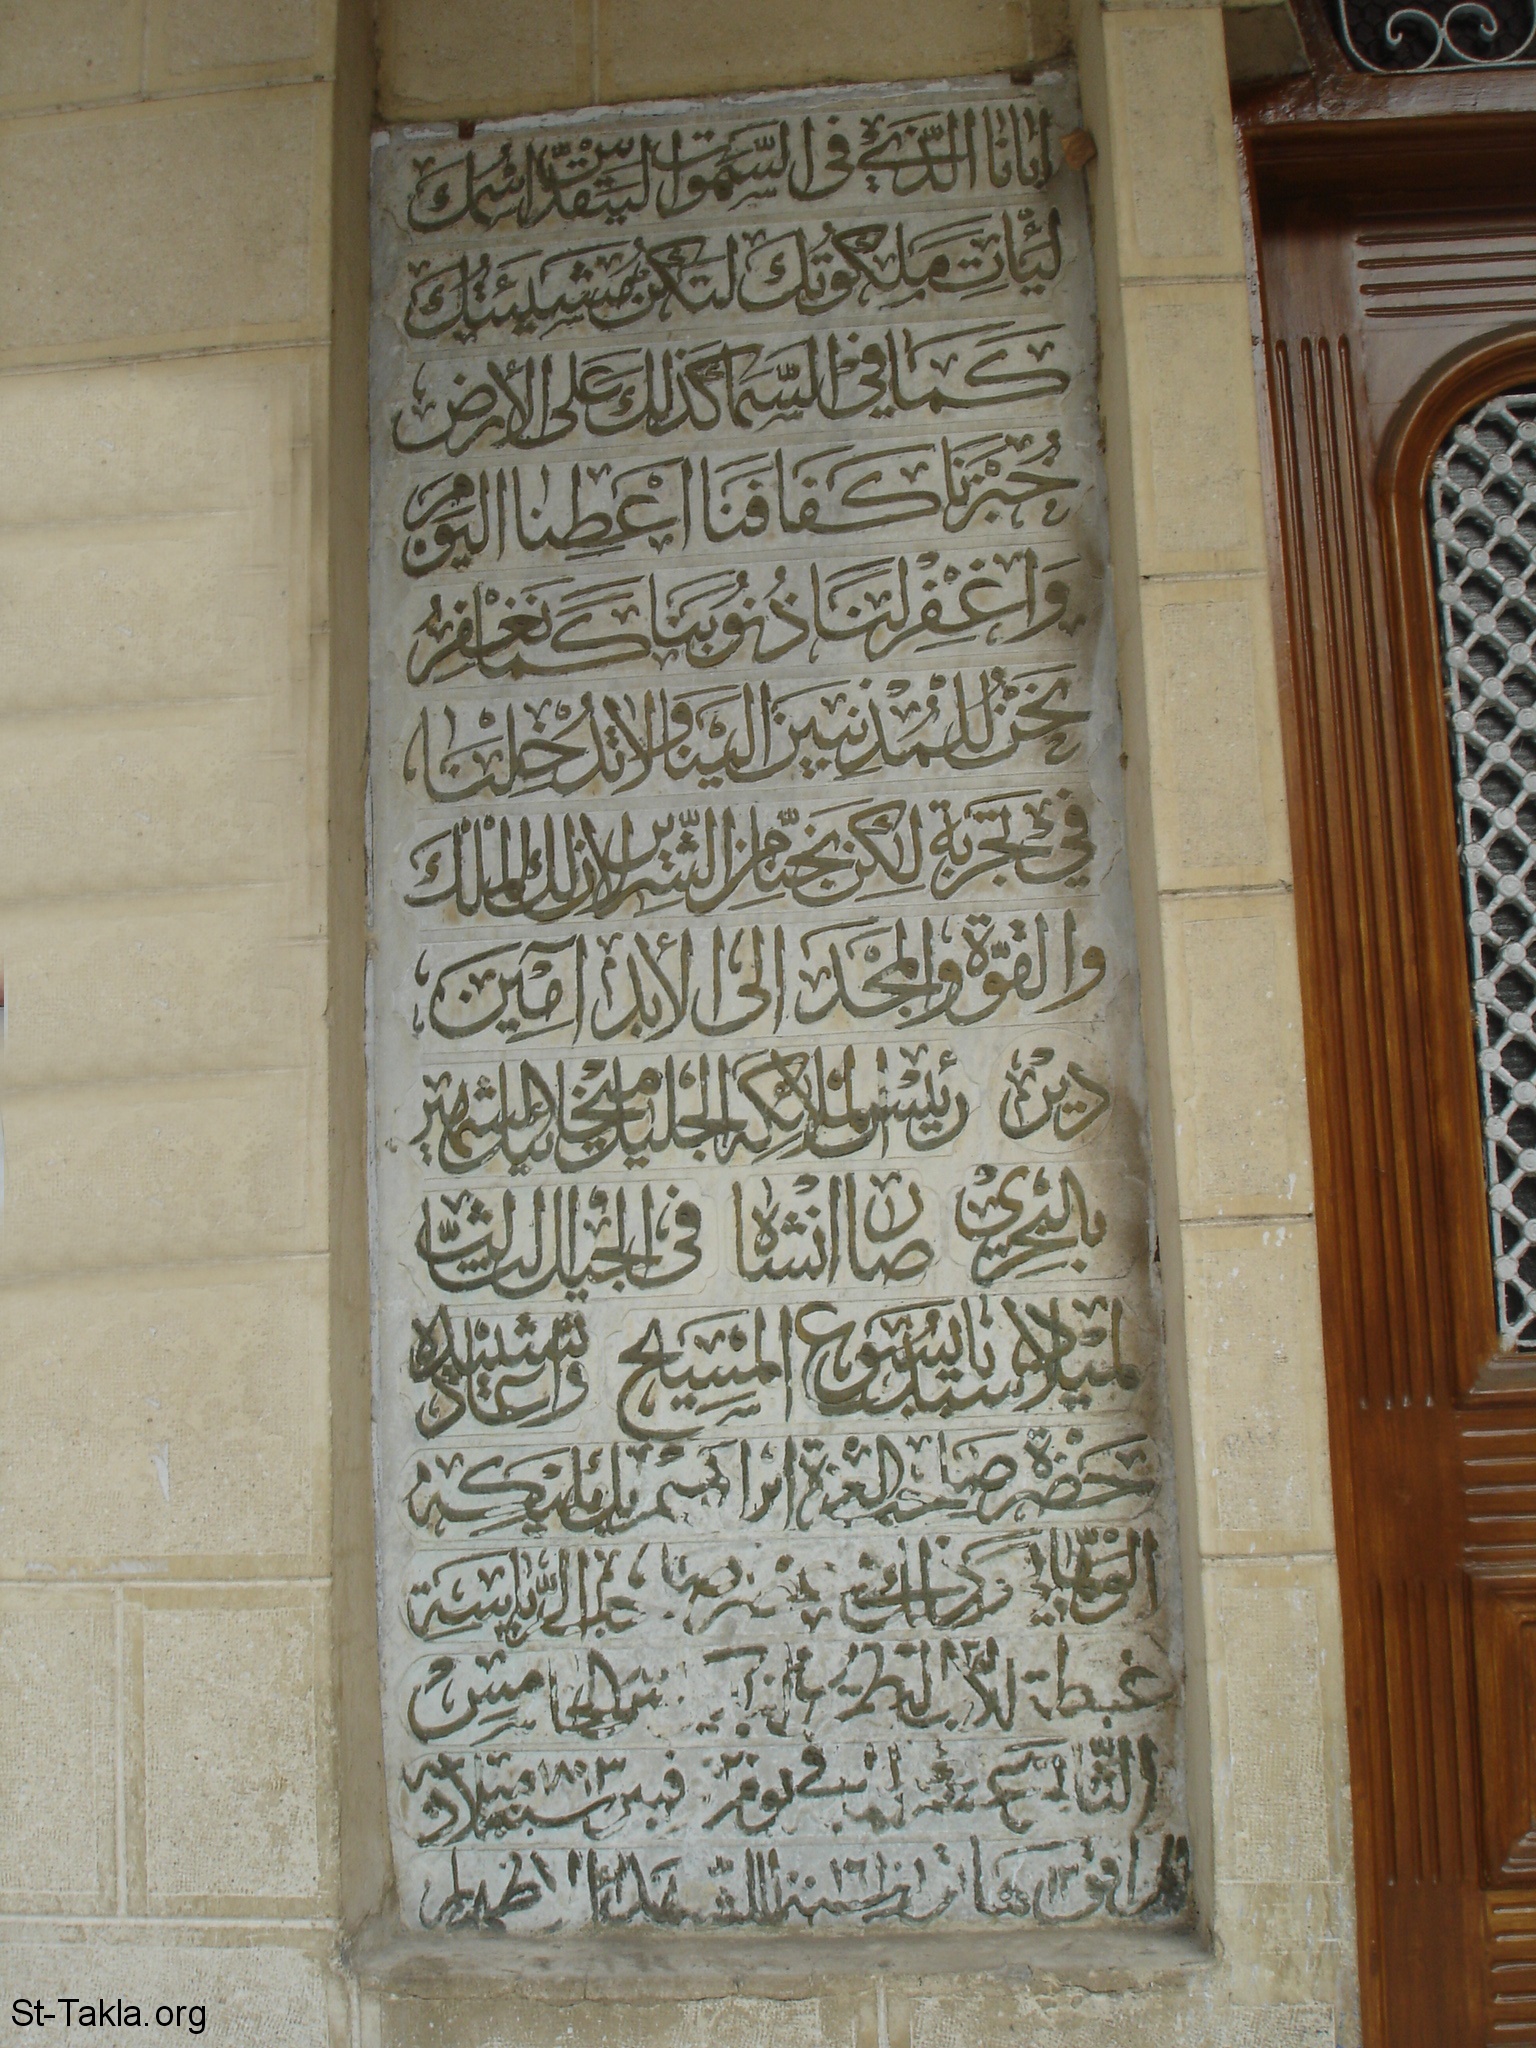 ابانا الذي في السموات ليتقدس اسمك
ليأت ملكوتك لتكن مشيئتك
كما في السما كذلك على الأرض
خبزنا كفافنا اعطنا اليوم
واغفر لنا ذنوبنا كما نغفر
نحن للمذنبين الينا ولا تدخلنا
في تجربة لكن نجنا من الشرير لان لك الملك
والقوة والمجد الى الأبد آمين
دير رئيس الملائكه الجليل ميخائيل الشهير
بالبحري صار انشاه في الجيل الثالث
لميلاد سيدنا يسوع المسيح واعاد تشييده
حضرة صاحب العزة ابراهيم بك مليكه
الوهابي الرياسة
غبطة للأب الخامس
في يوم ٢٠ سنة ميلاديه
سنة للشهداء الاطهار
St-Takla.org